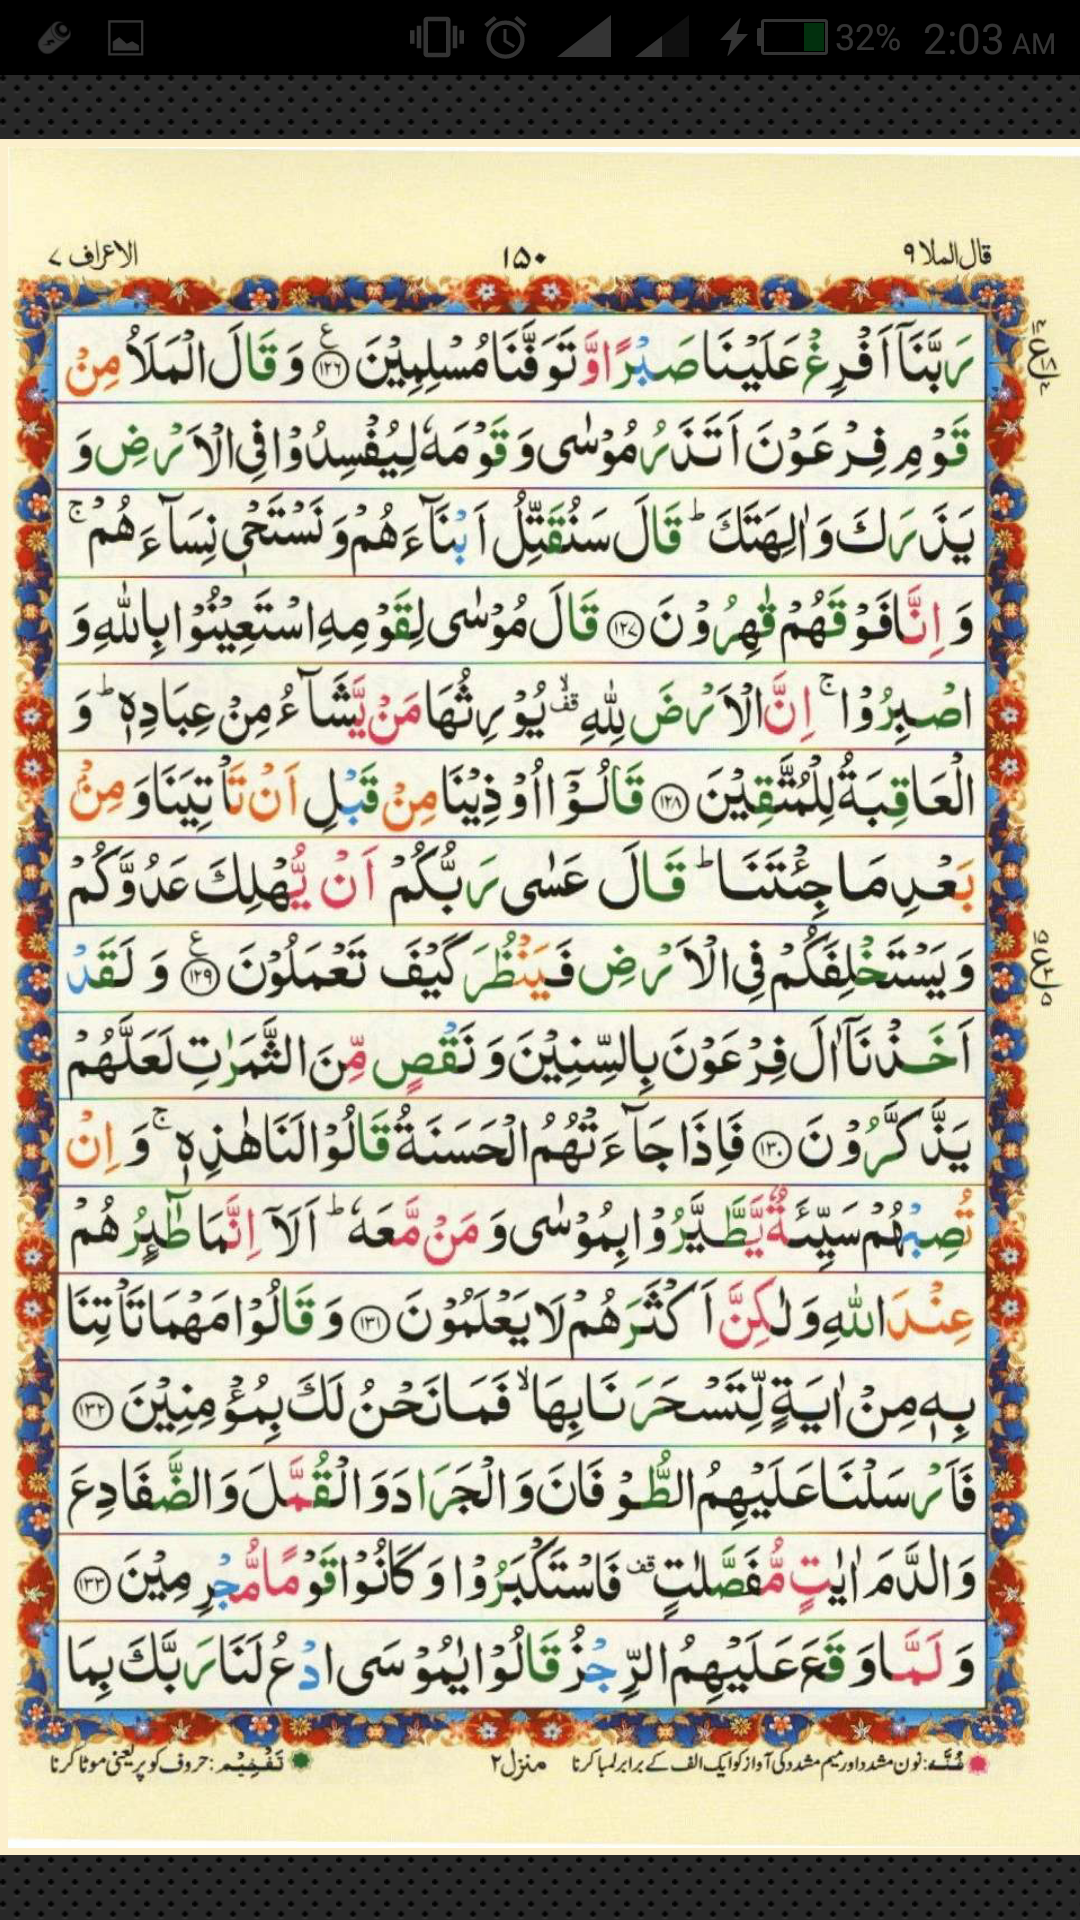 32% 2:03 AM
قال الملا ٩ ١٥٠ الاعراف ٧
رَبَّنَاۤ اَفْرِغْ عَلَیْنَا صَبْرًا وَّ تَوَفَّنَا مُسْلِمِیْنَ ﴿١٢٦﴾ وَ قَالَ الْمَلَاُ مِنْ
قَوْمِ فِرْعَوْنَ اَتَذَرُ مُوْسٰی وَ قَوْمَهٗ لِیُفْسِدُوْا فِی الْاَرْضِ وَ
یَذَرَكَ وَ اٰلِهَتَكَ ؕ قَالَ سَنُقَتِّلُ اَبْنَآءَهُمْ وَ نَسْتَحْیٖ نِسَآءَهُمْ ۚ
وَ اِنَّا فَوْقَهُمْ قٰهِرُوْنَ ﴿١٢٧﴾ قَالَ مُوْسٰی لِقَوْمِهِ اسْتَعِیْنُوْا بِاللّٰهِ وَ
اصْبِرُوْا ۚ اِنَّ الْاَرْضَ لِلّٰهِ ۙ قف یُوْرِثُهَا مَنْ یَّشَآءُ مِنْ عِبَادِهٖ ؕ وَ
الْعَاقِبَةُ لِلْمُتَّقِیْنَ ﴿١٢٨﴾ قَالُوْۤا اُوْذِیْنَا مِنْ قَبْلِ اَنْ تَاْتِیَنَا وَ مِنْۢ
بَعْدِ مَا جِئْتَنَا ؕ قَالَ عَسٰی رَبُّكُمْ اَنْ یُّهْلِكَ عَدُوَّكُمْ
وَ یَسْتَخْلِفَكُمْ فِی الْاَرْضِ فَیَنْظُرَ كَیْفَ تَعْمَلُوْنَ ﴿١٢٩﴾ وَ لَقَدْ
اَخَذْنَاۤ اٰلَ فِرْعَوْنَ بِالسِّنِیْنَ وَ نَقْصٍ مِّنَ الثَّمَرٰتِ لَعَلَّهُمْ
یَذَّكَّرُوْنَ ﴿١٣٠﴾ فَاِذَا جَآءَتْهُمُ الْحَسَنَةُ قَالُوْا لَنَا هٰذِهٖ ۚ وَ اِنْ
تُصِبْهُمْ سَیِّئَةٌ یَّطَّیَّرُوْا بِمُوْسٰی وَ مَنْ مَّعَهٗ ؕ اَلَاۤ اِنَّمَا طٰٓئِرُهُمْ
عِنْدَ اللّٰهِ وَ لٰكِنَّ اَكْثَرَهُمْ لَا یَعْلَمُوْنَ ﴿١٣١﴾ وَ قَالُوْا مَهْمَا تَاْتِنَا
بِهٖ مِنْ اٰیَةٍ لِّتَسْحَرَنَا بِهَا ۙ فَمَا نَحْنُ لَكَ بِمُؤْمِنِیْنَ ﴿١٣٢﴾
فَاَرْسَلْنَا عَلَیْهِمُ الطُّوْفَانَ وَ الْجَرَادَ وَ الْقُمَّلَ وَ الضَّفَادِعَ
وَ الدَّمَ اٰیٰتٍ مُّفَصَّلٰتٍ قف فَاسْتَكْبَرُوْا وَ كَانُوْا قَوْمًا مُّجْرِمِیْنَ ﴿١٣٣﴾
وَ لَمَّا وَقَعَ عَلَیْهِمُ الرِّجْزُ قَالُوْا یٰمُوْسَی ادْعُ لَنَا رَبَّكَ بِمَا
غُنَّہ: نون مشدد اور میم مشدد کی آواز کو ایک الف کے برابر لمبا کرنا منزل ٢ تَفْخِیْم: حروف کو پُر یعنی موٹا کرنا